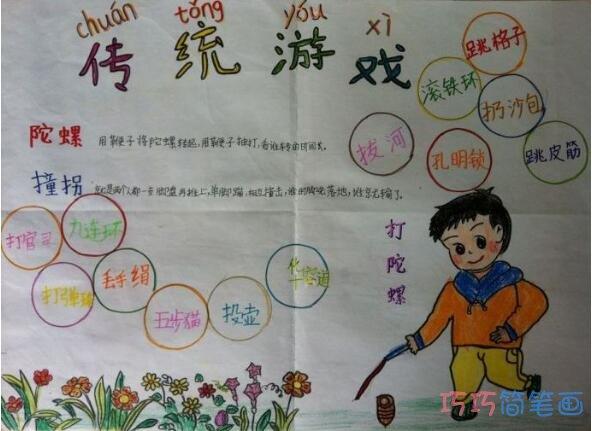 chuán tǒng yóu xì
传统游戏
跳格子
滚铁环
扔沙包
拔河
孔明锁
跳皮筋
陀螺
用鞭子将陀螺转起,用鞭子抽打,看谁转的时间长。
撞拐
就是两个人都一条脚盘再推上,单脚蹦,相互撞击,谁的脚先落地,谁就输了。
打官司
九连环
打弹珠
丢手绢
五步猫
投壶
华容道
打陀螺
巧巧简笔画